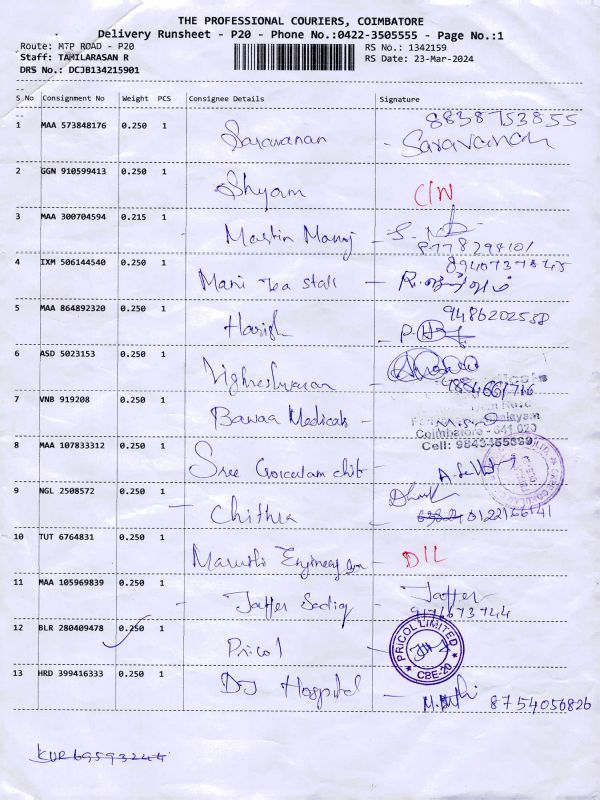 THE PROFESSIONAL COURIERS, COIMBATORE
Delivery Runsheet - P20 - Phone No.:0422-3505555 - Page No.:1
Route: MTP ROAD - P20
RS No.: 1342159
Staff: TAMILARASAN R
RS Date: 23-Mar-2024
DRS No.: DCJB134215901
S No Consignment No Weight PCS Consignee Details Signature
8838753855
1 MAA 573848176 0.250 1 Saravanan - Saravanan
2 GGN 910599413 0.250 1 Shyam C/N
3 MAA 300704594 0.215 1 Martin Manoj
4 IXM 506144540 0.250 1 Mani Tea stall
9486202538
5 MAA 864892320 0.250 1 Harish
6 ASD 5023153 0.250 1 Vigneshwaran
7 VNB 919208 0.250 1 Bawaa Medicals
Coimbatore - 641 020
Cell: 9843465399
8 MAA 107833312 0.250 1 Sree Gokulam chit
9 NGL 2508572 0.250 1 - Chithra
10 TUT 6764831 0.250 1 Maruthi D/L
11 MAA 105969839 0.250 1 - Jaffer Sadiq - Jaffer
12 BLR 280409478 0.250 1 Pricol
PRICOL LIMITED
CBE-20
13 HRD 399416333 0.250 1 DJ Hospital 8754056826
KUR 69593244